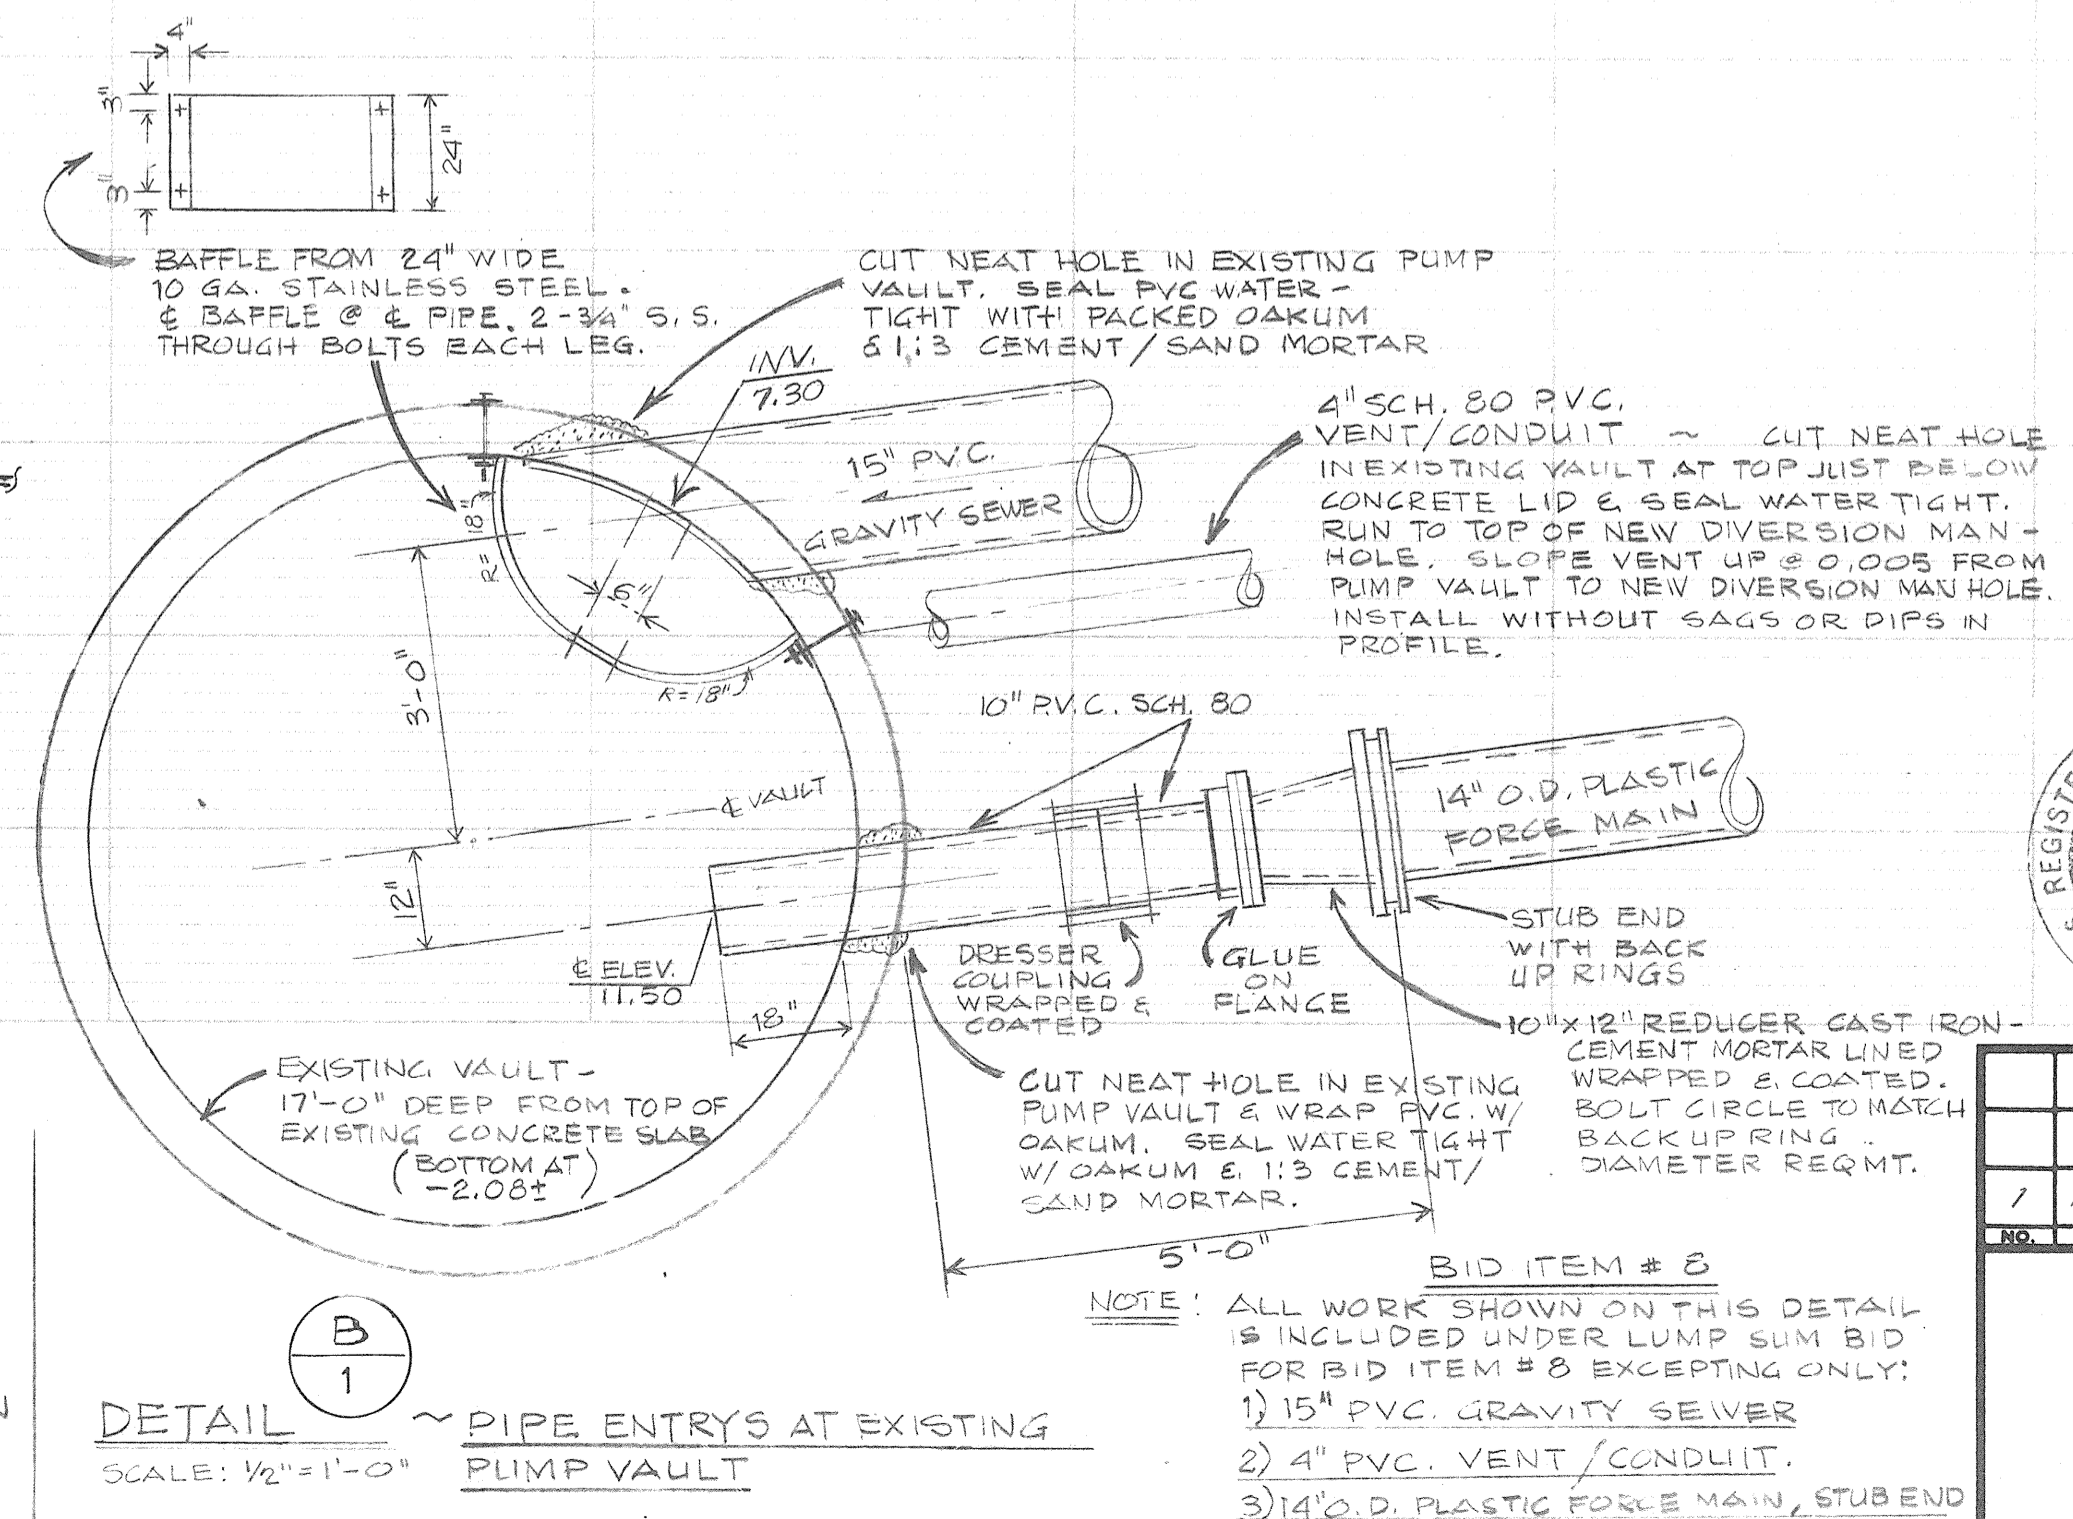 4"
3"
3"
24"
BAFFLE FROM 24" WIDE
10 GA. STAINLESS STEEL.
℄ BAFFLE @ ℄ PIPE. 2-3/4" S.S.
THROUGH BOLTS EACH LEG.
CUT NEAT HOLE IN EXISTING PUMP
VAULT. SEAL PVC WATER-
TIGHT WITH PACKED OAKUM
& 1:3 CEMENT/SAND MORTAR
INV.
7.30
15" P.V.C.
GRAVITY SEWER
4" SCH. 80 P.V.C.
VENT/CONDUIT ~ CUT NEAT HOLE
IN EXISTING VAULT AT TOP JUST BELOW
CONCRETE LID & SEAL WATER TIGHT.
RUN TO TOP OF NEW DIVERSION MAN-
HOLE. SLOPE VENT UP @ 0.005 FROM
PUMP VAULT TO NEW DIVERSION MANHOLE.
INSTALL WITHOUT SAGS OR DIPS IN
PROFILE.
R= 18"
6"
R=18"
3'-0"
10" P.V.C. SCH. 80
℄ VAULT
14" O.D. PLASTIC
FORCE MAIN
12"
℄ ELEV.
11.50
18"
DRESSER
COUPLING
WRAPPED &
COATED
GLUE
ON
FLANGE
STUB END
WITH BACK
UP RINGS
10"x12" REDUCER CAST IRON-
CEMENT MORTAR LINED
WRAPPED & COATED.
BOLT CIRCLE TO MATCH
BACK UP RING
DIAMETER REQMT.
EXISTING VAULT-
17'-0" DEEP FROM TOP OF
EXISTING CONCRETE SLAB
(BOTTOM AT
-2.08±)
CUT NEAT HOLE IN EXISTING
PUMP VAULT & WRAP PVC. W/
OAKUM. SEAL WATER TIGHT
W/ OAKUM & 1:3 CEMENT/
SAND MORTAR.
5'-0"
B
1
DETAIL ~ PIPE ENTRYS AT EXISTING
PUMP VAULT
SCALE: 1/2"=1'-0"
BID ITEM # 8
NOTE: ALL WORK SHOWN ON THIS DETAIL
IS INCLUDED UNDER LUMP SUM BID
FOR BID ITEM # 8 EXCEPTING ONLY:
1) 15" PVC. GRAVITY SEWER
2) 4" PVC. VENT/CONDUIT.
3) 14" O.D. PLASTIC FORCE MAIN, STUB END
1
NO.